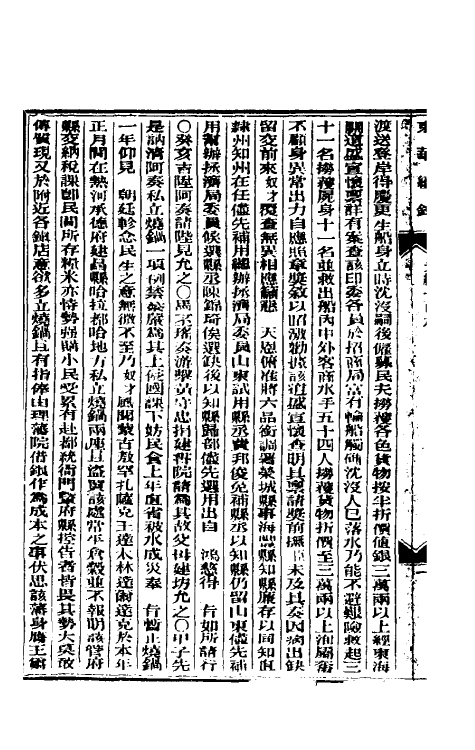 渡送登岸得慶更生船身立時沈沒嗣後僱募民夫撈獲各色貨物按半折價值銀三萬兩以上經東海
關道盛宣懷稟詳有案查該印委各員於招商局富有輪船觸礁沈沒人已落水乃能不避艱險救起三
十一名撈獲屍身十一名並救出船內中外客商水手五十四人撈獲貨物折價至三萬兩以上洵屬奮
不顧身異常出力自應照章獎敘以昭激勸據該道盛宣懷查明具稟請獎前撫臣未及具奏因病出缺
留交前來奴才覆查無異相應籲懇 天恩俯准將大品銜調署榮城縣事海豐縣知縣嚴存以同知直
隸州知州在任儘先補用總辦拯濟局委員山東試用縣丞費邦俊免補縣丞以知縣仍留山東儘先補
用幫辦拯濟局委員候選縣丞陳錦琦俟選缺後以知縣歸部儘先選用出自 鴻慈得 旨如所請行
〇癸亥吉陞阿奏請陛見允之〇奏游擊黃守忠捐建書院請為其故父母建坊允之〇甲子先
是訥濟阿奏私立燒鍋一項例禁綦嚴為其上侵國課下妨民食上年直省被水成災奉 旨暫止燒鍋
一年仰見 朝廷軫念民生之意無微不至乃奴才風聞蒙古敖罕扎薩克王達木林達爾達克於本年
正月間在熱河承德府建昌縣哈拉都哈地方私立燒鍋兩座且盜買該處常平倉穀並不報明該管府
縣交納稅課卽民間所存糧米亦恃勢強購小民受累有赴都統衙門曁府縣控告者皆畏其勢大莫敢
傳質現又於附近各鎮店意欲多立燒鍋且有指俸由理藩院借銀作為成本之事伏思該藩身膺王爵